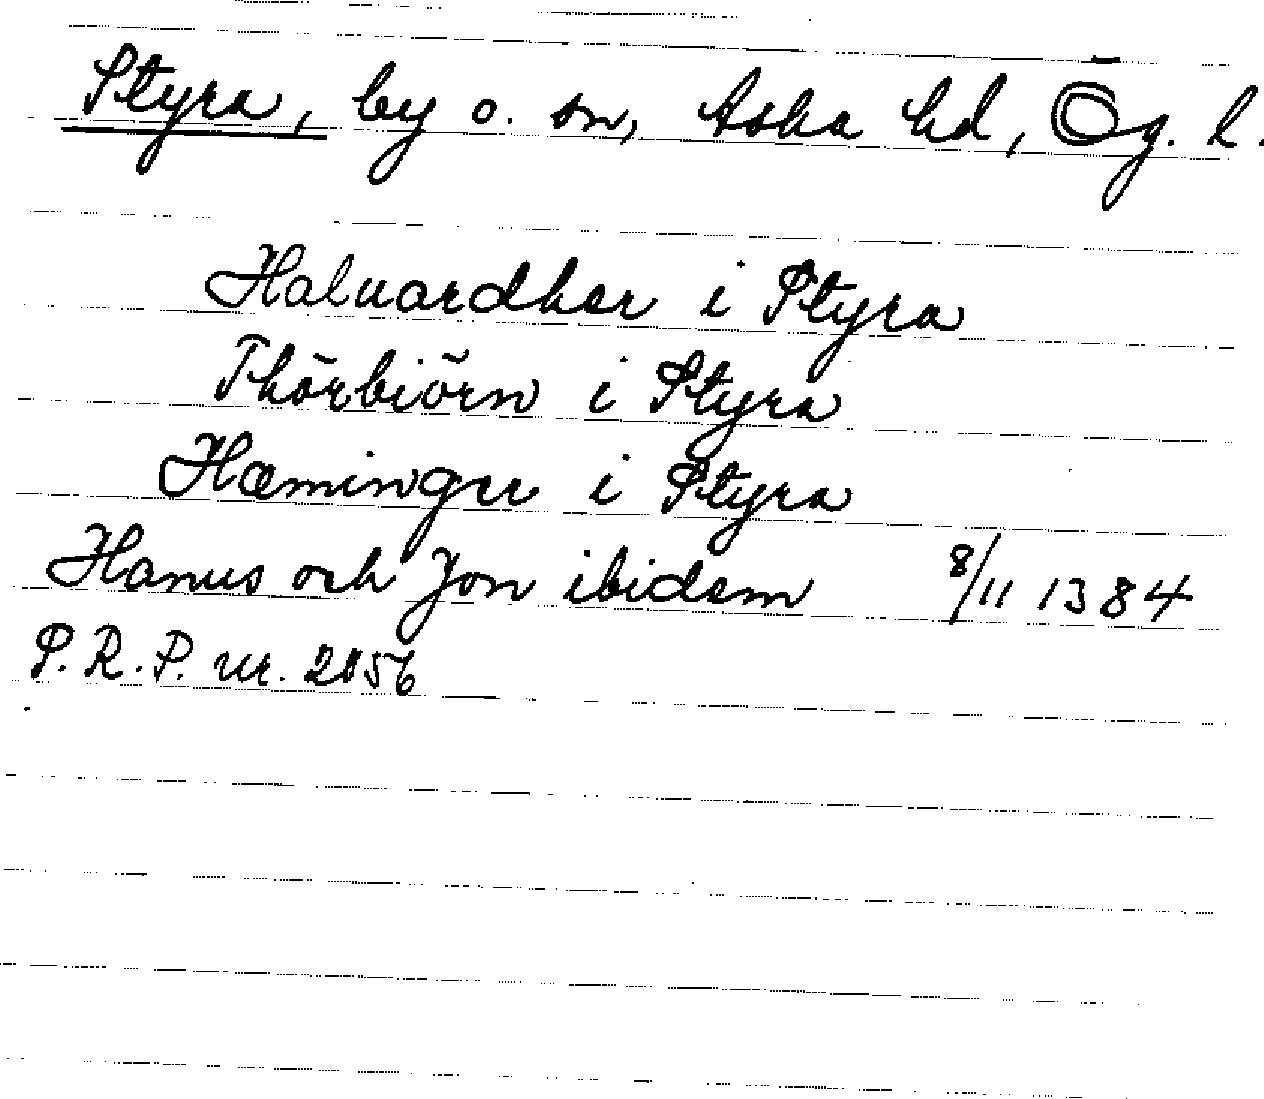 Styra, by o. sn, Aska hd, Ög. l.
Haluardher i Styra
Thörbiörn i Styra
Hæminger i Styra
Hanus och Jon ibidem 8/11 1384
P.R.P. nr. 2156